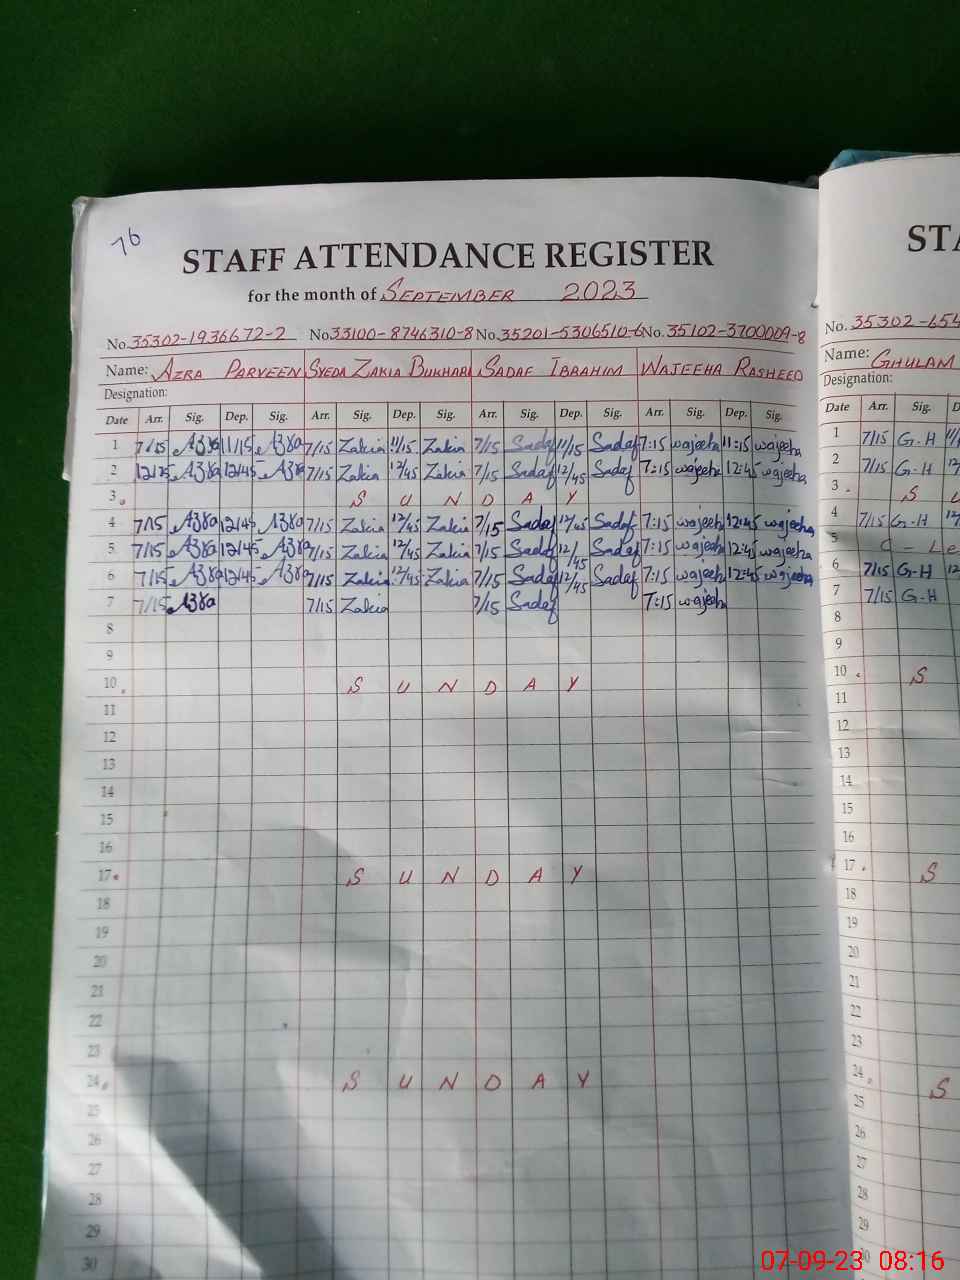 76
STAFF ATTENDANCE REGISTER
for the month of SEPTEMBER 2023
No. 35302-1936672-2 No. 33100-8746310-8 No. 35201-5306510-6 No. 35102-3700009-8
Name: AZRA PARVEEN SYEDA ZAKIA BUKHARI SADAF IBRAHIM WAJEEHA RASHEED
Designation:
Date Arr. Sig. Dep. Sig. Arr. Sig. Dep. Sig. Arr. Sig. Dep. Sig. Arr. Sig. Dep. Sig.
1 7/15 Azra 11/15 Azra 7/15 Zakia 11/15 Zakia 7/15 Sadaf 11/15 Sadaf 7:15 wajeeha 11:15 wajeeha
2 Azra 12/45 Azra 7/15 Zakia 12/45 Zakia 7/15 Sadaf 12/45 Sadaf 7:15 wajeeha 12:45 wajeeha
3. S U N D A Y
4 7/15 Azra 12/45 Azra 7/15 Zakia 12/45 Zakia 7/15 Sadaf 12/45 Sadaf 7:15 wajeeh 12:45 wajeeha
5. 7/15 Azra 12/45 Azra 7/15 Zakia 12/45 Zakia 7/15 Sadaf 12/45 Sadaf 7:15 wajeeh 12:45 wajeeha
6 7/15 Azra 12/45 Azra 7/15 Zakia 12/45 Zakia 7/15 Sadaf 12/45 Sadaf 7:15 wajeeh 12:45 wajeeha
7 7/15 Azra 7/15 Zakia 7/15 Sadaf 7:15 wajeeh
8
9
10. S U N D A Y
11
12
13
14
15
16
17. S U N D A Y
18
19
20
21
22
23
24. S U N D A Y
25
26
27
28
29
30
STA
No. 35302-654
Name: GHULAM
Designation:
Date Arr. Sig. D
1 7/15 G-H 11/
2 7/15 G-H 12/
3. S U
4 7/15 G-H 12/
5 C - Le
6 7/15 G-H 12
7 7/15 G-H
8
9
10. S
11
12
13
14
15
16
17. S
18
19
20
21
22
23
24. S
25
26
27
28
29
30
07-09-23 08:16